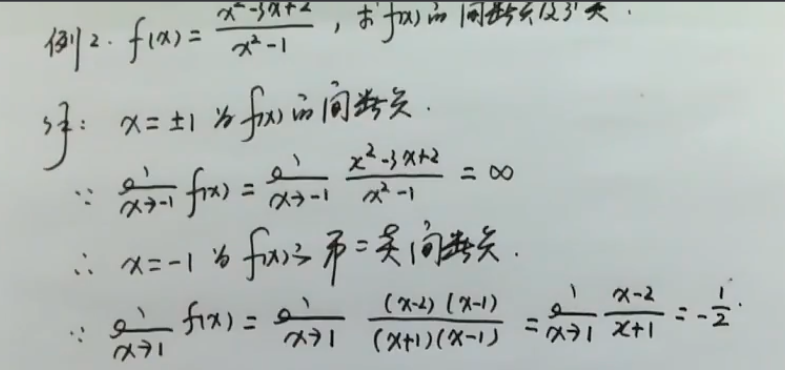 例2. f(x) = \frac{x²-3x+2}{x²-1}, 求f(x)的间断点及分类.
解: x = ±1 为 f(x) 的间断点.
∵ \lim_{x→-1} f(x) = \lim_{x→-1} \frac{x²-3x+2}{x²-1} = ∞
∴ x = -1 为 f(x) 之第二类间断点.
∵ \lim_{x→1} f(x) = \lim_{x→1} \frac{(x-2)(x-1)}{(x+1)(x-1)} = \lim_{x→1} \frac{x-2}{x+1} = -\frac{1}{2}.